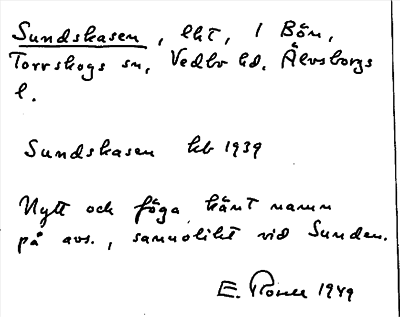 Sundskasen, lht, 1 Bön,
Torrskogs sn, Vedbo hd. Älvsborgs
l.
Sundskasen hb 1939
Nytt och föga känt namn
på avs., sannolikt vid Sunden.
E. 1949